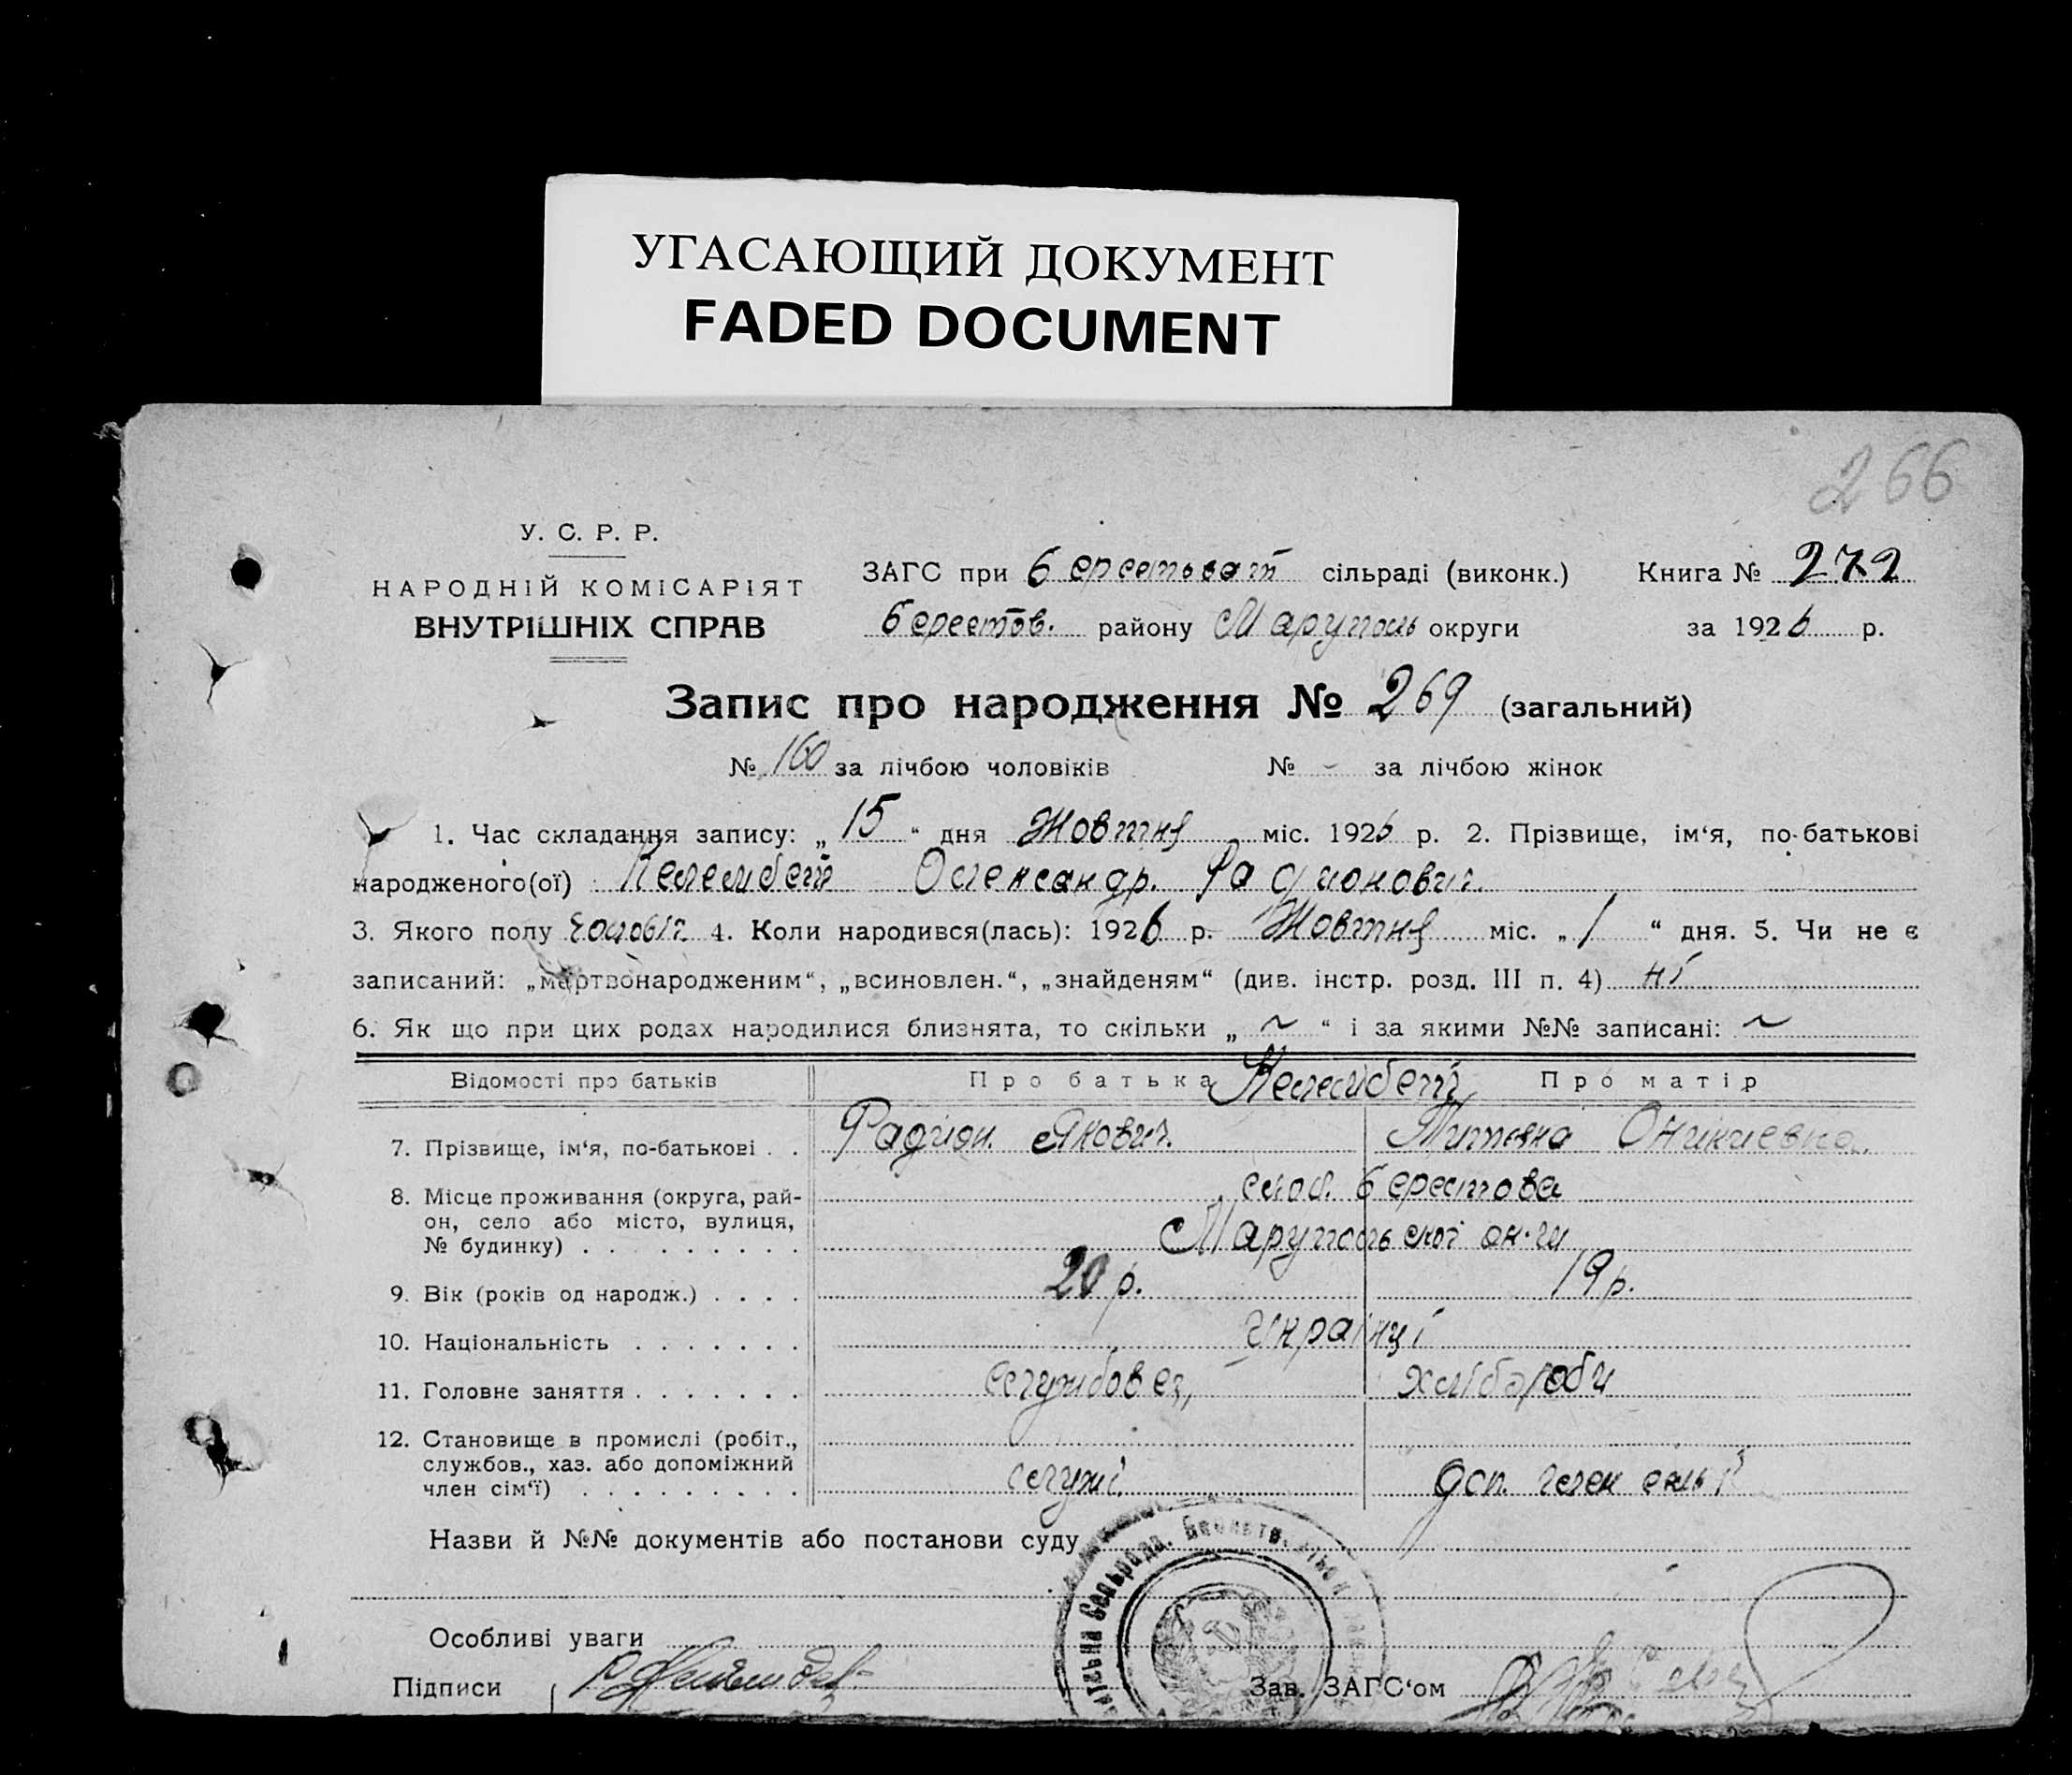 УГАСАЮЩИЙ ДОКУМЕНТ
FADED DOCUMENT
266
У. С. Р. Р.
НАРОДНІЙ КОМІСАРІЯТ
ВНУТРІШНІХ СПРАВ
ЗАГС при Берестоват сільраді (виконк.) Книга № 272
Берестов. району Маруполь округи за 1926 р.
Запис про народження № 269 (загальний)
№ 160 за лічбою чоловіків № - за лічбою жінок
1. Час складання запису: „ 15 “ дня Жовтня міс. 1926 р. 2. Прізвище, ім‘я, по-батькові
народженого(ої) Келембет Олександр. Радионович.
3. Якого полу чоловіч. 4. Коли народився(лась): 1926 р. Жовтня міс. „ 1 “ дня. 5. Чи не є
записаний: „мертвонародженим“, „всиновлен.“, „знайденям“ (див. інстр. розд. III п. 4) ні
6. Як що при цих родах народилися близнята, то скільки „ ~ “ і за якими №№ записані: ~
Відомості про батьків Про батька Келембет Про матір
7. Прізвище, ім‘я, по-батькові . . Радион. Якович. Титяна Оникиевна.
8. Місце проживання (округа, рай-
он, село або місто, вулиця,
№ будинку) . . . . . . . . .
слоб. Берестова
Марупольської ок-ги
9. Вік (років од народж.) . . . . 20 р. 19 р.
10. Національність . . . . . . . Українці
11. Головне заняття . . . . . . . службовец, хлібороби
12. Становище в промислі (робіт.,
службов., хаз. або допоміжний
член сім‘ї) . . . . . . . . .
служ. доп. член
Назви й №№ документів або постанови суду
Особливі уваги
Підписи
Зав. ЗАГС‘ом